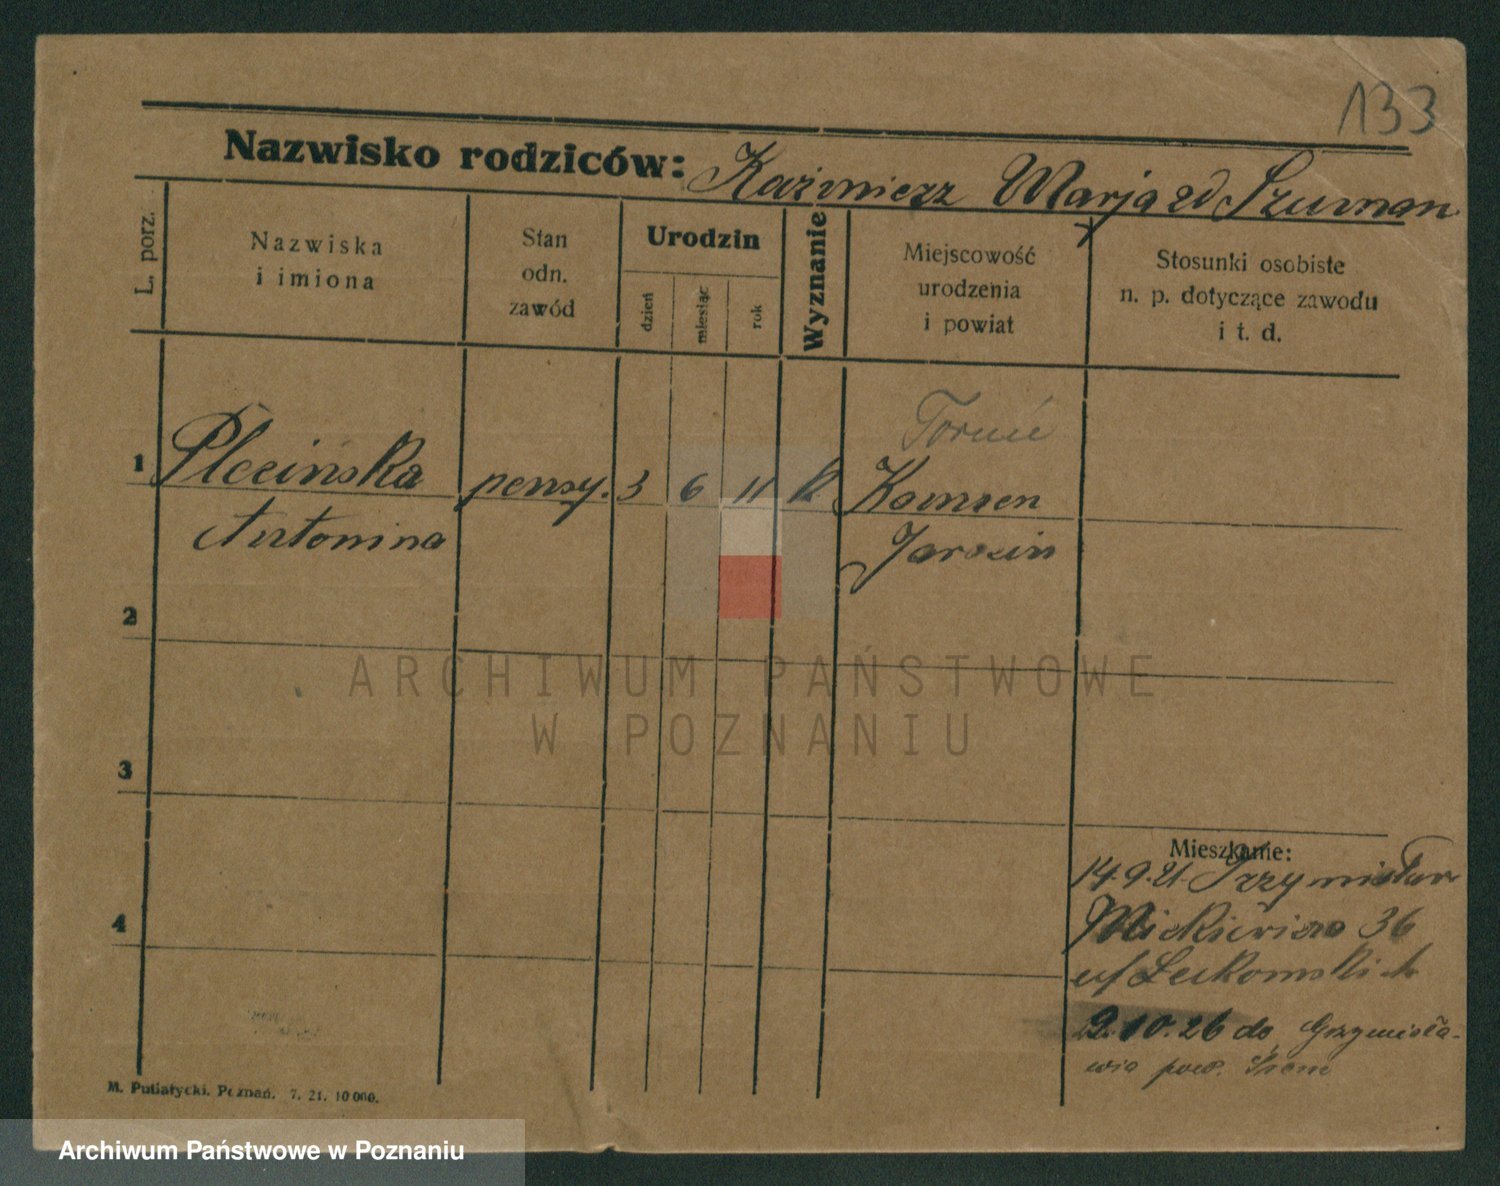 133
Nazwisko rodziców: Kazimierz Marja zd Szuman
L. porz.
Nazwiska
i imiona
Stan
odn.
zawód
Urodzin
dzień
miesiąc
rok
Wyznanie
Miejscowość
urodzenia
i powiat
Stosunki osobiste
n. p. dotyczące zawodu
i t. d.
Toruń
1 Plecińska pensy. 3 6 11 k Komsen
Antonina Jarocin
2
3
4
Mieszkanie:
14.9.21
Mickiewicza 36
u/
9.10.26 do Grzymisła-
wia pow. Śrem
M. Putiatycki. Poznań. 7. 21. 10 000.
ARCHIWUM PAŃSTWOWE
W POZNANIU
Archiwum Państwowe w Poznaniu